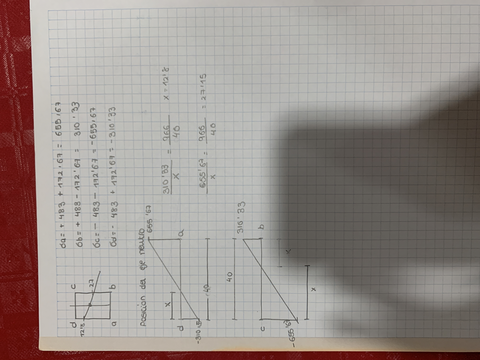 σa = + 483 + 172'67 = 655'67
σb = + 483 - 172'67 = 310'33
σc = - 483 - 172'67 = -655'67
σd = - 483 + 172'67 = -310'33
d
c
12'8
27
a
b
Posición del eje neutro
655'67
d
a
x
40
-310'33
310'33 / x = 966 / 40
x = 12'8
655'67 / x = 966 / 40 = 27'15
310'33
40
c
b
x
-655'67